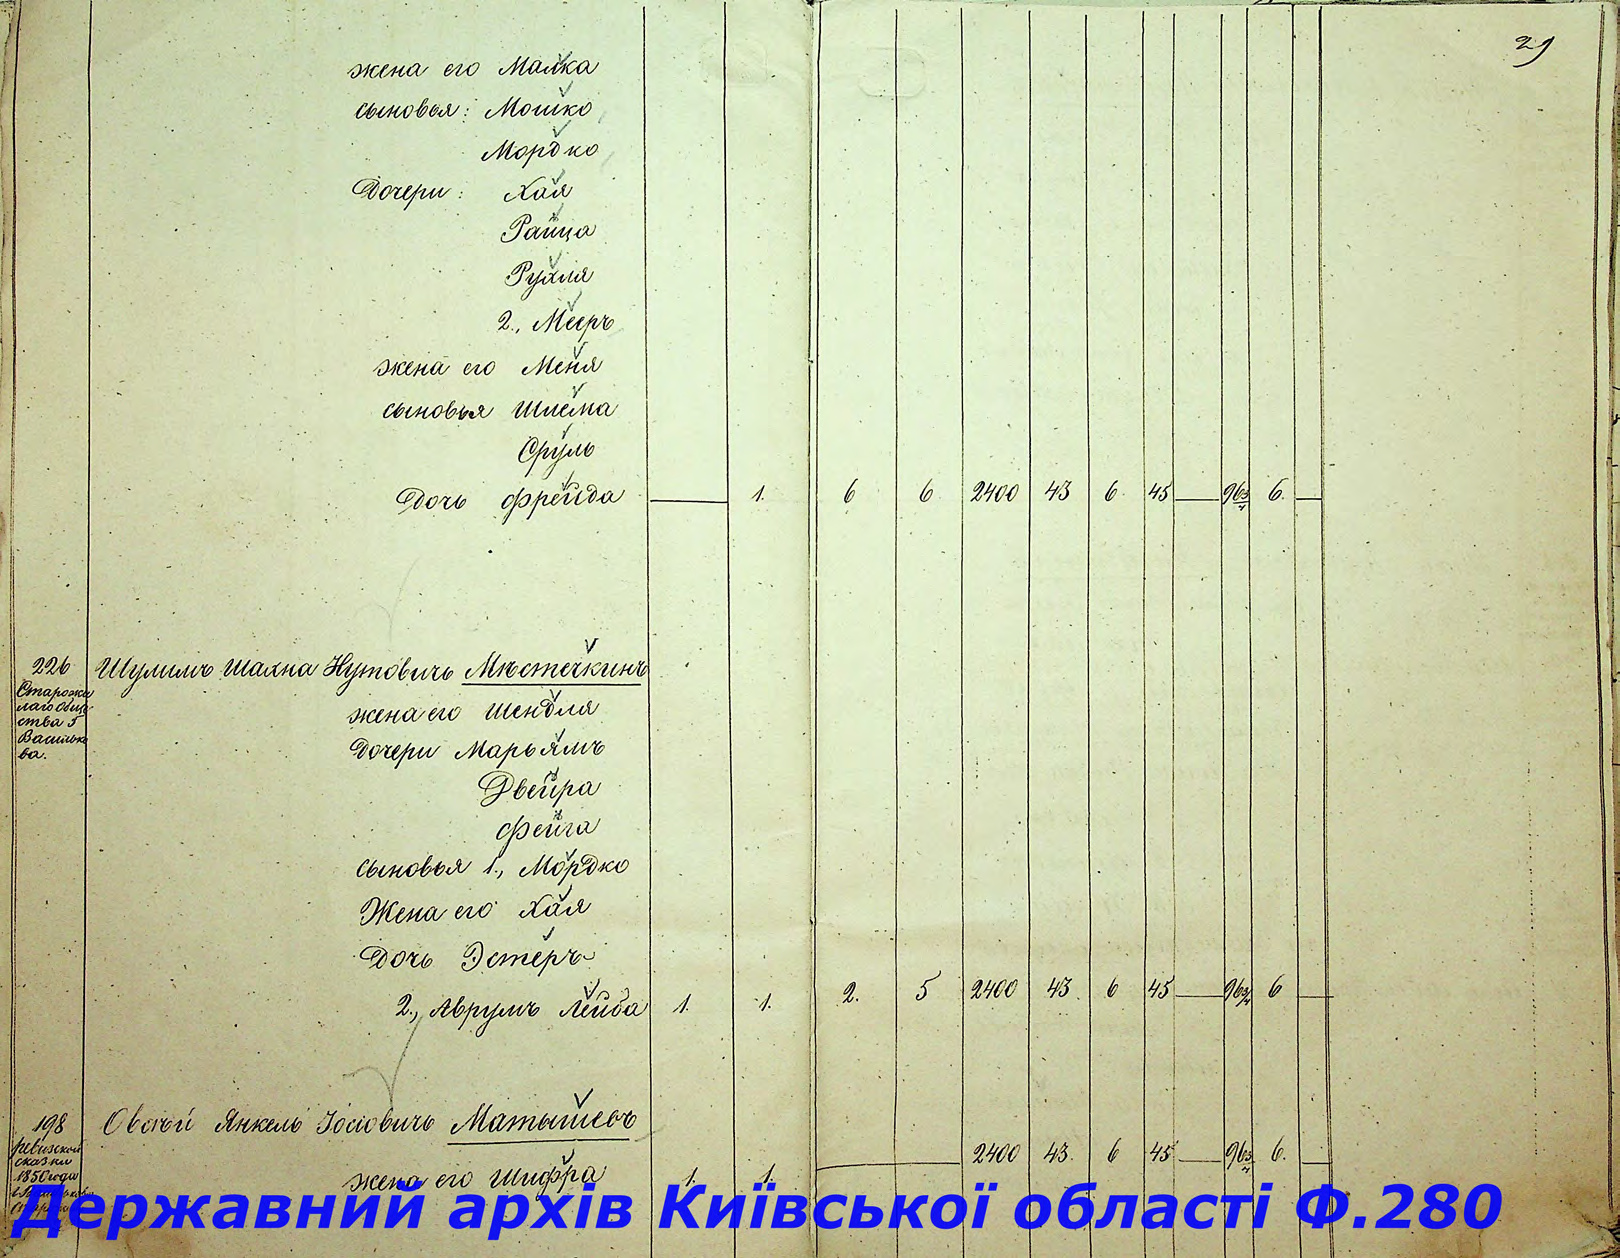 29
жена его Малка
сыновья: Мошко
Мордко
Дочери: Хая
Райца
Рухля
2., Мееръ
жена его Меня
сыновья Шлема
Сруль
Дочь Фрейда 1. 6 6 2400 43 6 45 96 3/4 6.
226 Шулимъ Шахна Нутовичъ Мѣстечкинъ
Старожи
лаго Обще
ства г
Василько
ва.
жена его Шендля
Дочери Марьямъ
Двейра
Фейга
сыновья 1., Мордко
Жена его Хая
Дочь Эстеръ
2., Аврумъ Лейба 1. 1. 2. 5 2400 43 6 45 96 3/4 6
198 Овсѣй Янкель Іосіовичъ Матышевъ
ревизской
сказки
1850 года
жена его Шифра 1. 1. 2400 43. 6 45 96 3/4 6.
Державний архів Київської області Ф.280